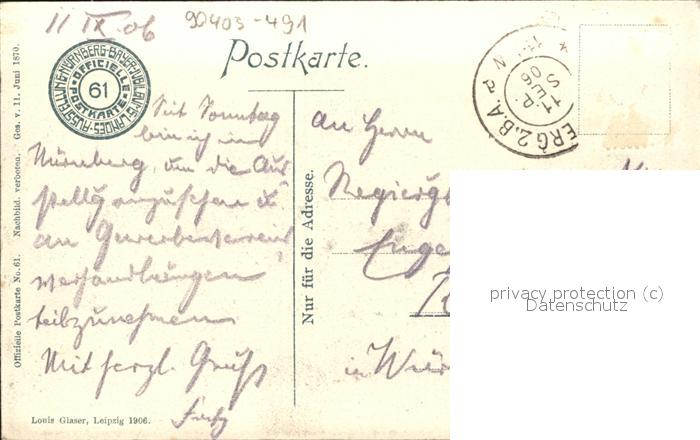 11 IX 06
90403-491
Postkarte.
AUSSTELLUNG·NÜRNBERG·BAYER·JUBILÄUMS·LANDES·
OFFICIELLE POSTKARTE
61
Officielle Postkarte No. 61. Nachbild. verboten. Ges. v. 11. Juni 1870.
Seit Sonntag
bin ich in
Nürnberg, um die Aus
stellg anzuschen &
an Gewerbeverein
verhandlungen
teilzunehmen
Mit herzl. Gruß
Fritz
Louis Glaser, Leipzig 1906.
Nur für die Adresse.
BERG 2.B.A.
11. SEP 06
An Herrn
Regiergs
Euge
in Wür
privacy protection (c)
Datenschutz